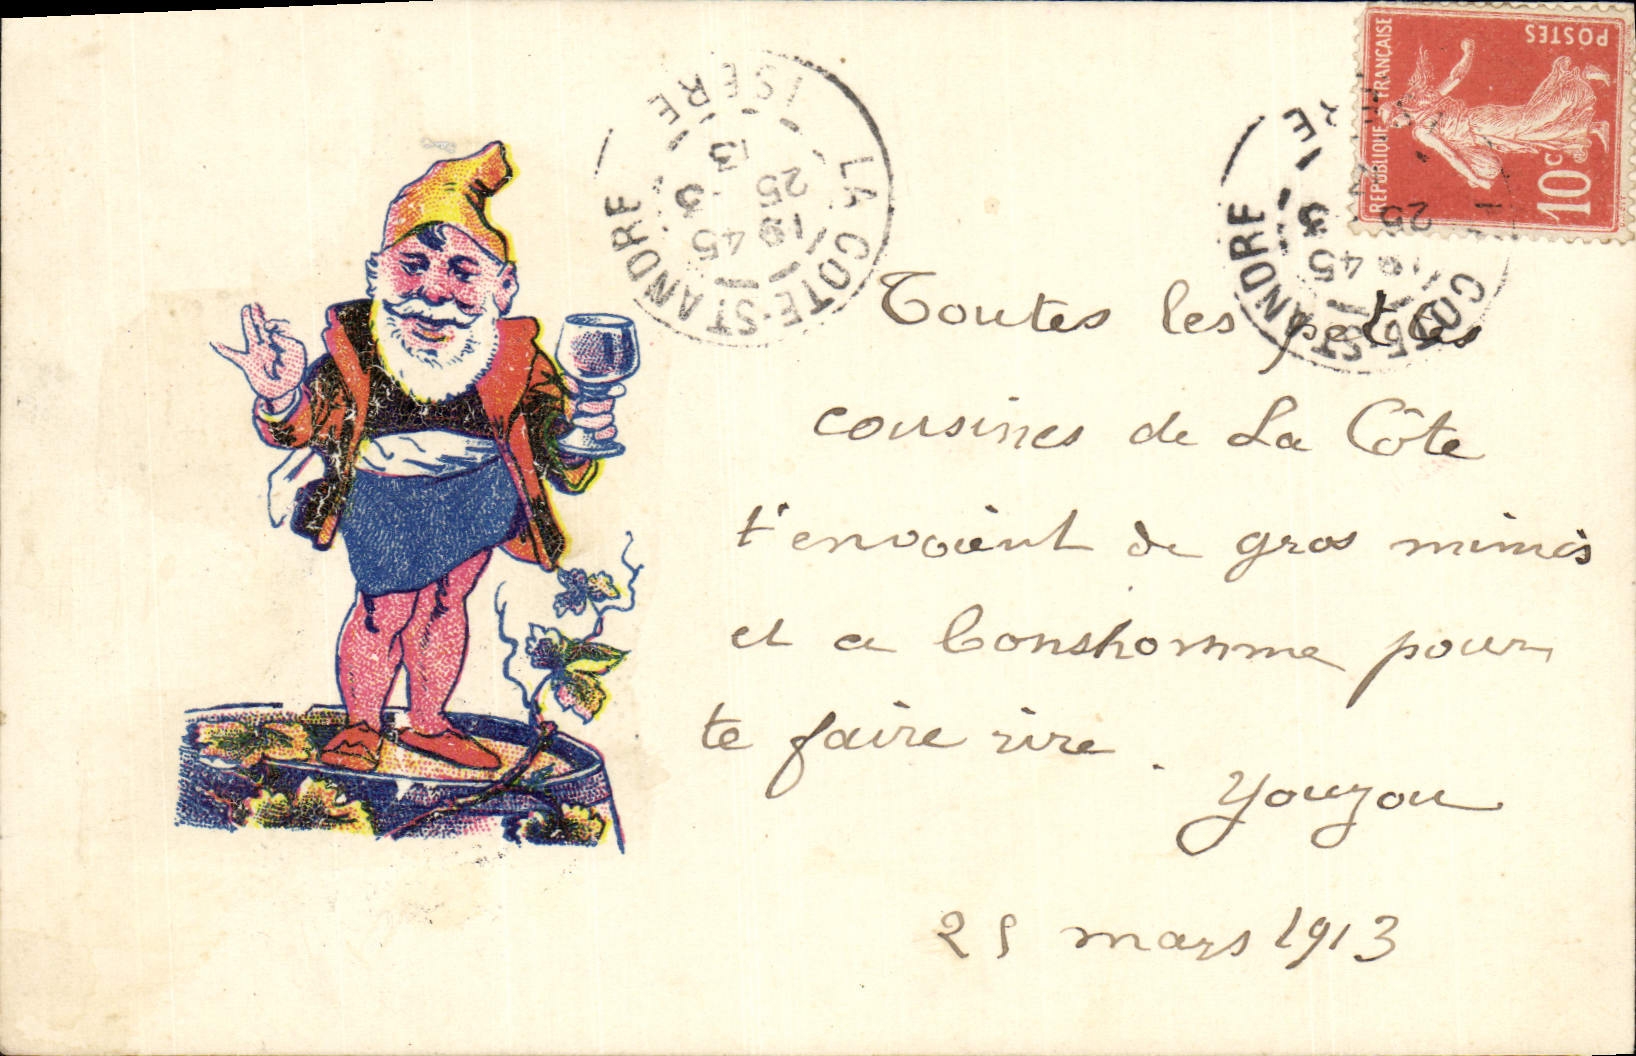 LA COTE-ST ANDRE
ISERE
19 45
25 3
13
REPUBLIQUE FRANÇAISE
POSTES
10c
COTE-ST ANDRE
19 45
25 3
Toutes les petites
cousines de La Côte
t'envoient de gros mimis
et ce bonshomme pour
te faire rire.
Youzou
25 mars 1913